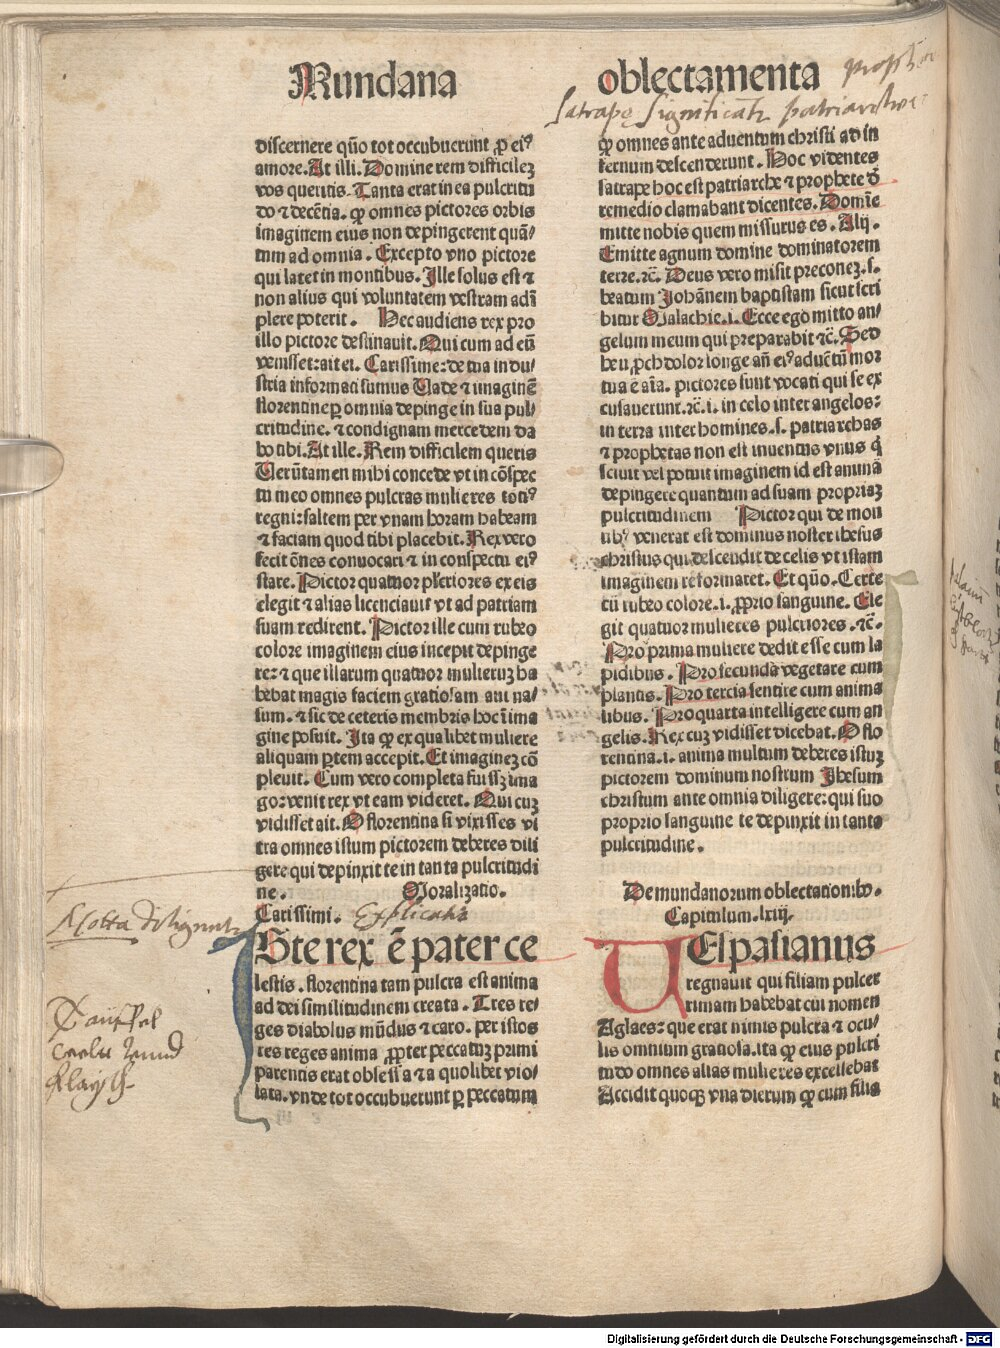 Mundana
oblectamenta
Satrapę significant patriarchas
discernere quo tot occubuerunt ꝓ eiꝰ
amore. At illi. Domine rem difficilez
vos queritis. Tanta erat in ea pulcritu
do ⁊ decētia. ꝙ omnes pictores orbis
imaginem eius non depingerent quā/
tum ad omnia. Excepto vno pictore
qui latet in montibus. Ille solus est ⁊
non alius qui voluntatem vestram adī
plere poterit. Hec audiens rex pro
illo pictore destinauit. Qui cum ad eū
venisset: ait ei. Carissime: de tua indu/
stria informati sumus Uade ⁊ imaginē
florentine ꝑ omnia depinge in sua pul/
critudine. ⁊ condignam mercedem da
bo tibi. At ille. Rem difficilem queris
Uerūtamen mihi concede vt in cōspec
tu meo omnes pulcras mulieres totiꝰ
regni: saltem per vnam horam habeam
⁊ faciam quod tibi placebit. Rex vero
fecit ōnes conuocari ⁊ in conspectu eiꝰ
stare. Pictor quatuor pl'criores ex eis
elegit ⁊ alias licenciauit vt ad patriam
suam redirent. Pictor ille cum rubeo
colore imaginem eius incepit depinge
re: ⁊ que illarum quatuor mulieruz ha
bebat magis faciem gratiosam aut na/
sum. ⁊ sic de ceteris membris hoc ī ima
gine posuit. Ita ꝙ ex qualibet muliere
aliquam ꝑtem accepit. Et imaginez cō
pleuit. Cum vero completa fuissz ima
go: venit rex vt eam videret. Qui cuz
vidisset ait. O florentina si vixisses vl
tra omnes istum pictorem deberes dili
gere qui depinxit te in tanta pulcritudi
ne. Moralizatio.
Carissimi. Explicatio
ISte rex ē pater ce
lestis. florentina tam pulcra est anima
ad dei similitudinem creata. Tres re/
ges diabolus mūdus ⁊ caro. per istos
tres reges anima ꝓpter peccatuz primi
parentis erat obsessa ⁊ a quolibet vio/
lata. vnde tot occubuerunt ꝑ peccatum
ꝙ omnes ante aduentum christi ad in
fernum descenderunt. Hoc videntes
satrape hoc est patriarche ⁊ prophete ꝺ̄
remedio clamabant dicentes. Domīe
mitte nobis quem missurus es. Alij.
Emitte agnum domine dominatorem
terre. ⁊c̄. Deus vero misit preconez. s.
beatum Johānem baptistam sicut scri
bitur Malachie. i. Ecce ego mitto an/
gelum meum qui preparabit ⁊c̄. Sed
heu ꝓch dolor longe an̄ eiꝰ aduētū mor
tua ē aīa. pictores sunt vocati qui se ex
cusauerunt. ⁊c̄. i. in celo inter angelos:
in terra inter homines. s. patriarchas
⁊ prophetas non est inuentus vnus q̇
sciuit vel potuit imaginem id est animā
depingere quantum ad suam propriaz
pulcritudinem Pictor qui de mon
tibꝰ venerat est dominus noster ihesus
christus qui descendit de celis vt istam
imaginem reformaret. Et quō. Certe
cū rubeo colore. i. ꝓprio sanguine. Ele
git quatuor mulieres pulcriores. ⁊c̄.
Pro prima muliere dedit esse cum la
pidibus. Pro secunda vegetare cum
plantis. Pro tercia sentire cum anima
libus. Pro quarta intelligere cum an
gelis. Rex cuz vidisset dicebat. O flo
rentina. i. anima multum deberes istuz
pictorem dominum nostrum Jhesum
christum ante omnia diligere: qui suo
proprio sanguine te depinxit in tanta
pulcritudine.
De mundanorum oblectationibꝰ.
Capitulum. lxiij.
UEspasianus
regnauit qui filiam pulcer
rimam habebat cui nomen
Aglaes: que erat nimis pulcra ⁊ ocu/
lis omnium gratiosa. ita ꝙ eius pulcri
tudo omnes alias mulieres excellebat
Accidit quoqꝫ vna dierum ꝙ cum filia
Digitalisierung gefördert durch die Deutsche Forschungsgemeinschaft - DFG